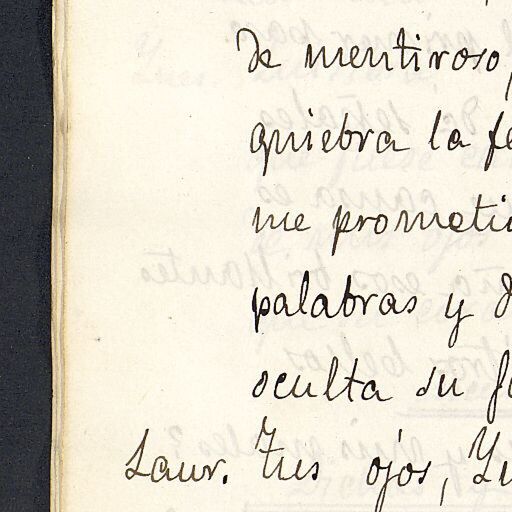 de mentiroso,
quiebra la fe
me prometi
palabras y d
oculta su
Laur. Tus ojos,